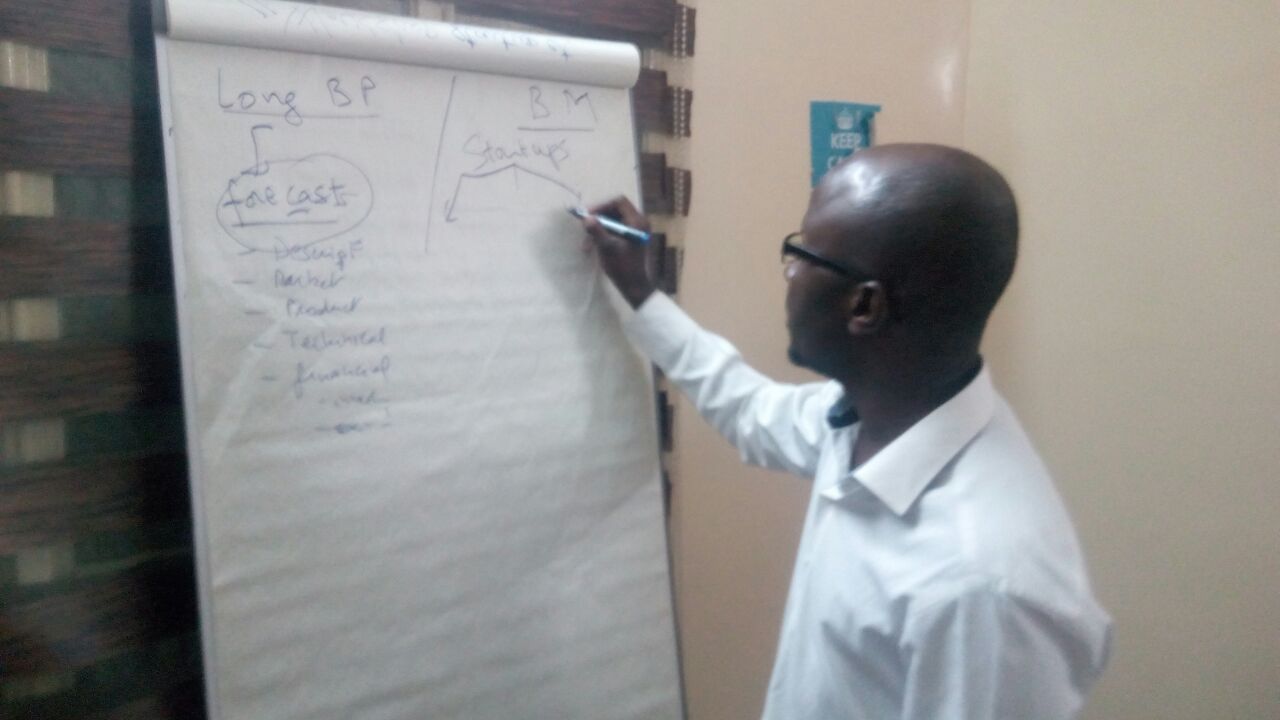 Long BP
Forecasts
- Descript
- Market
- Product
- Technical
- financial
BM
Startups
KEEP